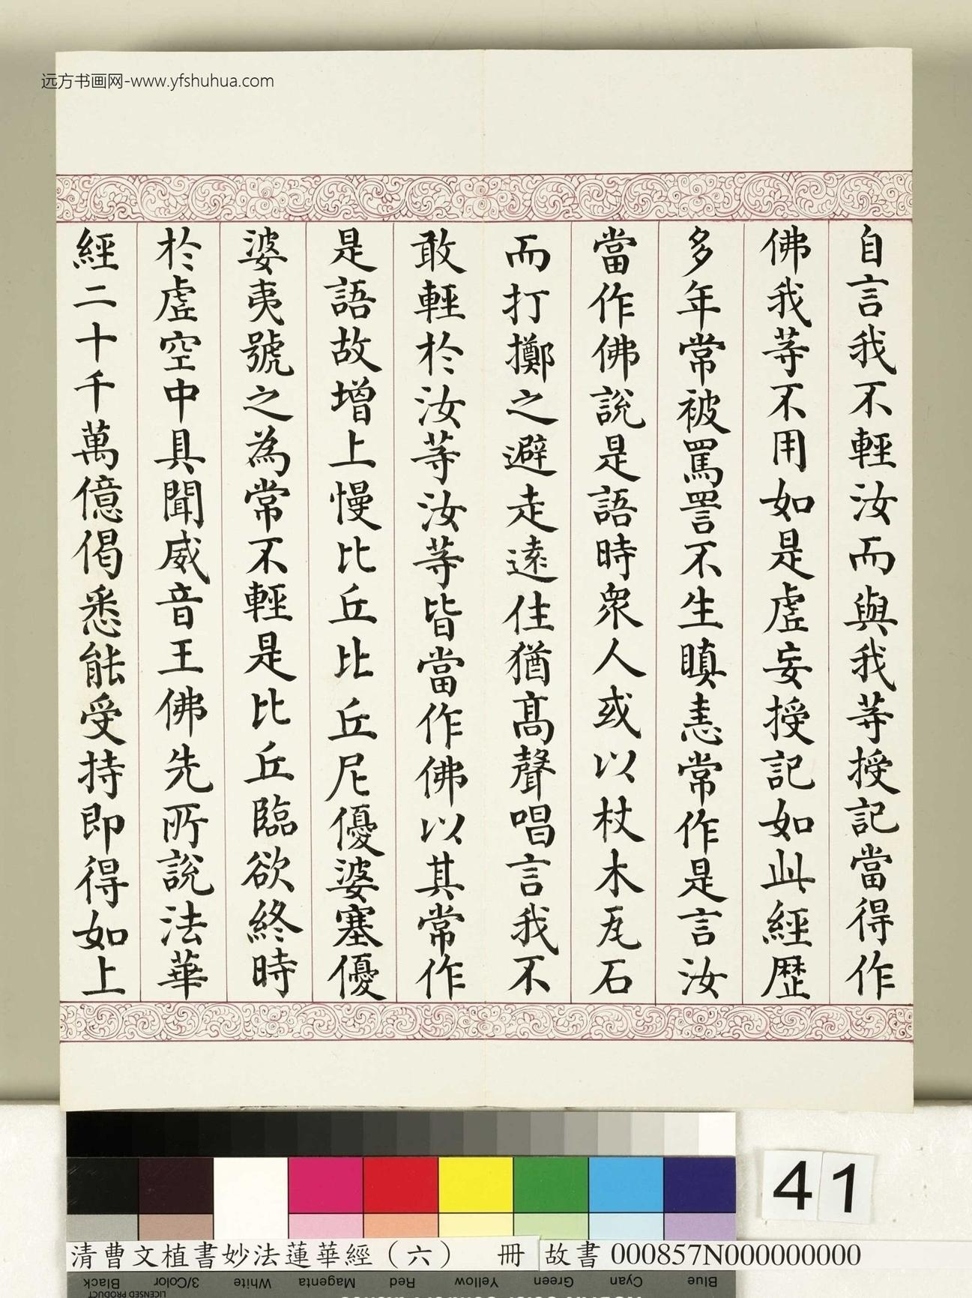 远方书画网-www.yfshuhua.com
自言我不輕汝而與我等授記當得作
佛我等不用如是虛妄授記如此經歷
多年常被罵詈不生瞋恚常作是言汝
當作佛說是語時眾人或以杖木瓦石
而打擲之避走遠住猶高聲唱言我不
敢輕於汝等汝等皆當作佛以其常作
是語故增上慢比丘比丘尼優婆塞優
婆夷號之為常不輕是比丘臨欲終時
於虛空中具聞威音王佛先所說法華
經二十千萬億偈悉能受持即得如上
41
清曹文植書妙法蓮華經（六） 冊 故書 000857N000000000
Black 3/Color White Magenta Red Yellow Green Cyan Blue
LICENSED PRODUCT